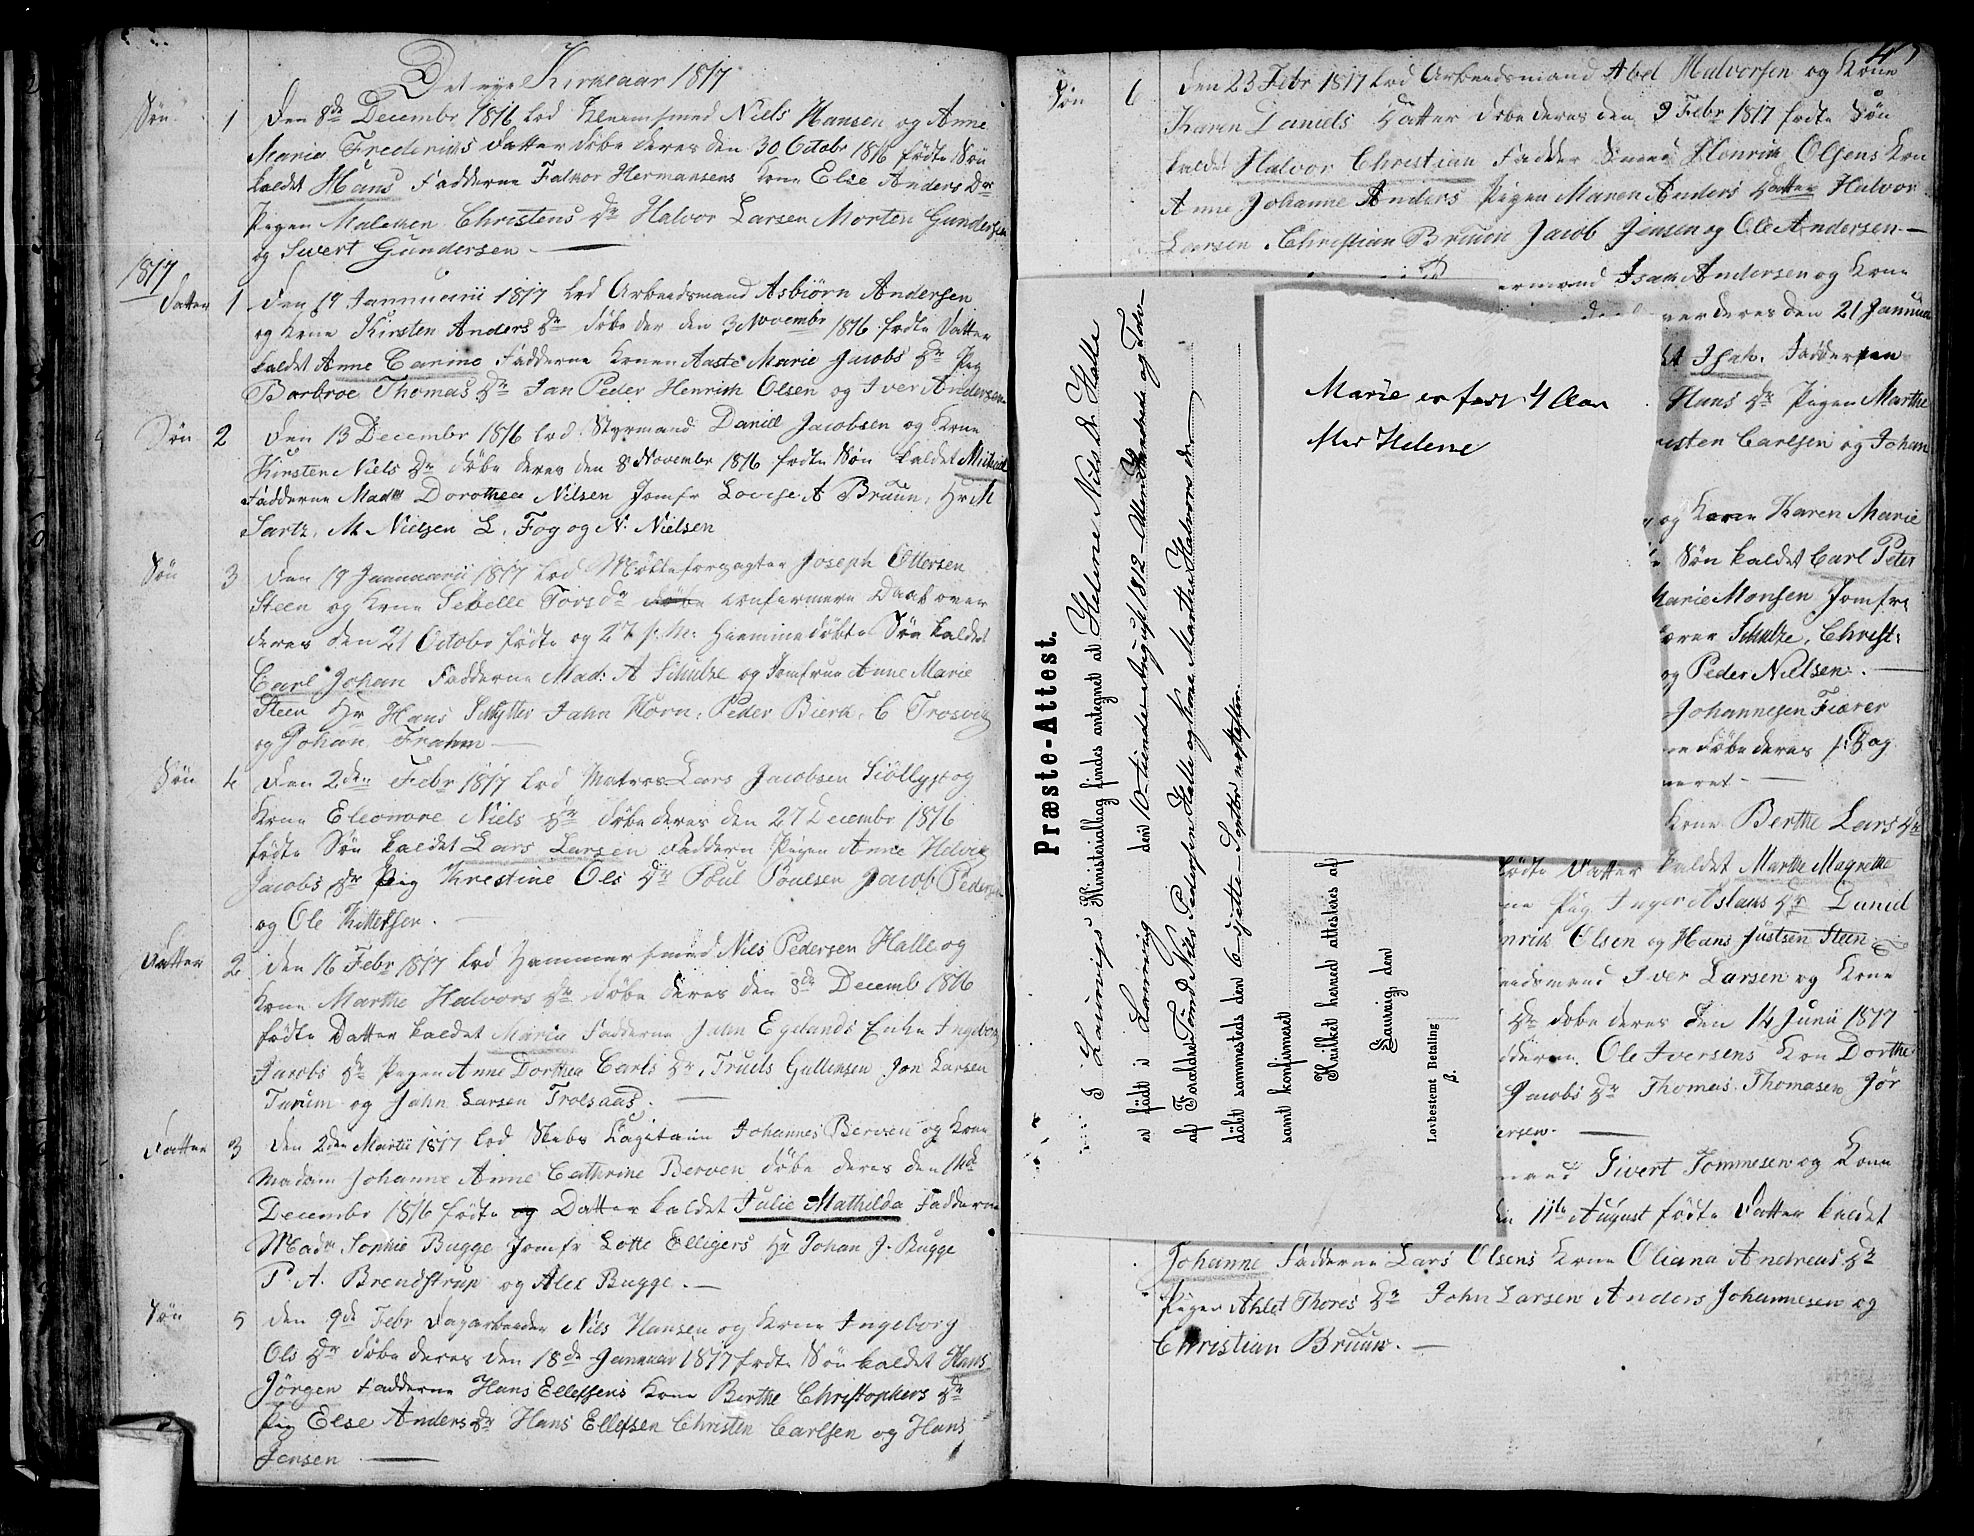 Det nye Kirkeaar 1817
Søn 1 Den 8de Decembr 1816 lod Kleensmed Niels Hansen og Anne
Maria Fredericks Datter døbe deres den 30 Octobr 1816 fødte Søn
kaldet Hans Fadderne Halvor Hermansens Kone Else Anders Dr
Pigen Malehen Christens Dr Halvor Larsen Morten Gundersen
og Sivert Gundersen
1817
Datter 1 Den 19 Jannuarii 1817 lod Arbeidsmand Asbiørn Andersen
og Kone Kirsten Anders Dr døbe der den 3 Novembr 1816 fødte Datter
kaldet Anne Carine Fadderne Konen Aaste Marie Jacobs Dr Pig
Barbroe Thomas Dr Jan Peder Henrich Olsen og Iver Andersen
Søn 2 Den 13 Decembr 1816 lod Styrmand Daniel Jacobsen og Kone
Kirstene Niels Dr døbe deres den 8 Novembr 1816 fødte Søn kaldet Michael
Fadderne Madm Dorothea Nilsen Jomfr Lovise A Bruun, Hr M
Sartz, M Nielsen L. Fog og N. Nielsen
Søn 3 Den 19 Jannuarii 1817 lod Mølleforpagter Joseph Ottersen
Steen og Kone Sebelle Torsdr døbe confermere Daab over
deres den 21 Octobr fødte og 27 s. M. hiemmedøbte Søn kaldet
Carl Johan Fadderne Mad: A Schultze og Jomfrue Anne Marie
Steen Hr Hans Schytter Jahn Horn, Peder Bierk, C Trosvig
og Johan Frahm
Søn 4 Den 2den Febr 1817 lod Matros Lars Jacobsen Siøllyst og
Kone Eleonore Niels Dr døbe deres den 27 Decembr 1816
fødte Søn kaldet Lars Larsen Faddern Pigen Anne Helvig
Jacobs Dr Pig Krestine Ols Dr Poul Poulsen Jacob Pedersen
og Ole Kittelsen.
Datter 2 Den 16 Febr 1817 lod Hammersmed Nils Pedersen Halle og
Kone Marthe Halvors Dr døbe deres den 8de Decemb 1816
fødte Datter kaldet Maria Fadderne John Egelands Enke Ingebor
Jacobs Dr Pigen Anne Dorthea Carls Dr, Truels Gullensen Jon Larsen
Turum og Jahn Larsen Trolsaas.
Datter 3 Den 2den Martii 1817 lod Skibs Capitain Johannes Berven og Kone
Madam Johanne Anne Cathrine Berven døbe deres den 14de
Decembr 1816 fødte og Datter kaldet Julie Mathilda Fadderne
Madm Sophie Bugge Jomfr Lotte Elligers Hr Johan J. Bugge
P. A. Brendstrup og Alex Bugge.
Søn 5 Den 9de Febr Dagarbeider Nils Hansen og Kone Ingeborg
Ols Dr døbe deres den 18de Januar 1817 fødte Søn kaldet Hans
Jørgen Fadderne Hans Ellefsens Kone Berthe Christophers Dr
Pig Else Anders Dr Hans Ellefsen Christen Carlsen og Hans
Jensen
Søn 6 Den 23 Febr 1817 lod Arbeidsmand Abel Halvorsen og Kone
Karen Daniels Datter døbe deres den 9 Febr 1817 fødte Søn
kaldet Halvor Christian Fadder Smed Henrich Olsens Kon
Anne Johanne Anders Pigen Maren Anders Datter Halvor
Larsen Christian Bruun Jacob Jensen og Ole Andersen
ermand Isach Andersen og Kone
deres den 21 Januar
Isak. Fadderne
Hans Dr Pigen Marthe
isten Carlsen og Johan
og Kone Karen Marie
Søn kaldet Carl Peter
Marie Monsen Jomfr
Schultze, Christ:
og Peder Nielsen.
Johannesen Fiærer
døbe deres
neret
Kone Berthe Lars Dr
fødte Datter kaldet Marthe Magrethe
ne Pig Inger Aslaus Dr Daniel
nrik Olsen og Hans Justsen Steen
eidsmand Iver Larsen og Kone
Dr døbe deres den 14 Junii 1817
dderen Ole Iversens Kon Dorthe
Jacobs Dr Thomas Thomasen Jør
ersen.
mand Sivert Tommesen og Kone
n 11te August fødte Datter kaldet
Johanne Fadderne Lars Olsens Kone Oliana Andreas Dr
Pigen Ahlet Thores Dr John Larsen Anders Johannesen og
Christian Bruun.
Præste-Attest.
I Laurvigs Ministerialbog findes antegnet at Helene Nils Dr. Halle
er født i Laurvig den 10-tiende August 1812-Atten Hundrede og Tolv-
af Forældre Tømd Nils Pedersen Halle og Kone Marthe Halvors dr
døbt sammesteds den 6-sjette-Septbr næstefter.
samt konfirmeret
Hvilket herved attesteres af
Laurvig, den
Lovbestemt Betaling
β.
Marie er født 4 Aar
før Helene